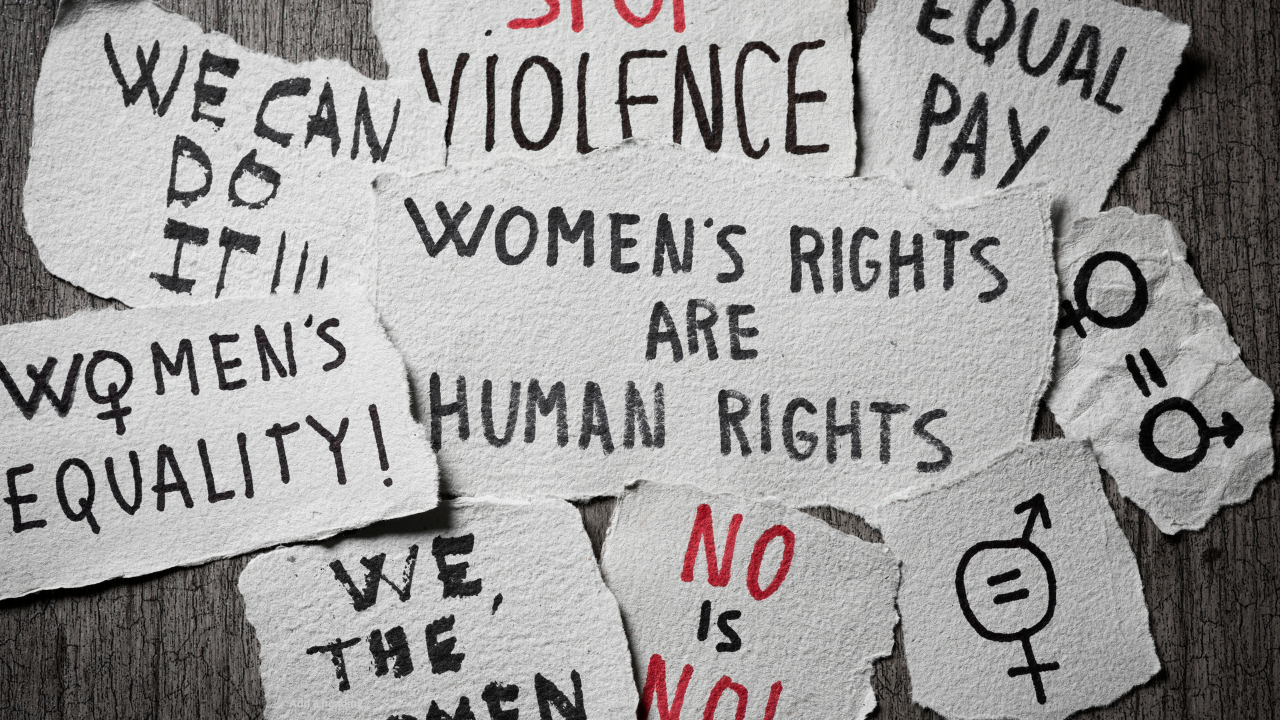 WE CAN
DO
IT!!!
STOP
VIOLENCE
EQUAL
PAY
WOMEN'S RIGHTS
ARE
HUMAN RIGHTS
WOMEN'S
EQUALITY!
=
WE,
THE
WOMEN
NO
IS
NO!
=